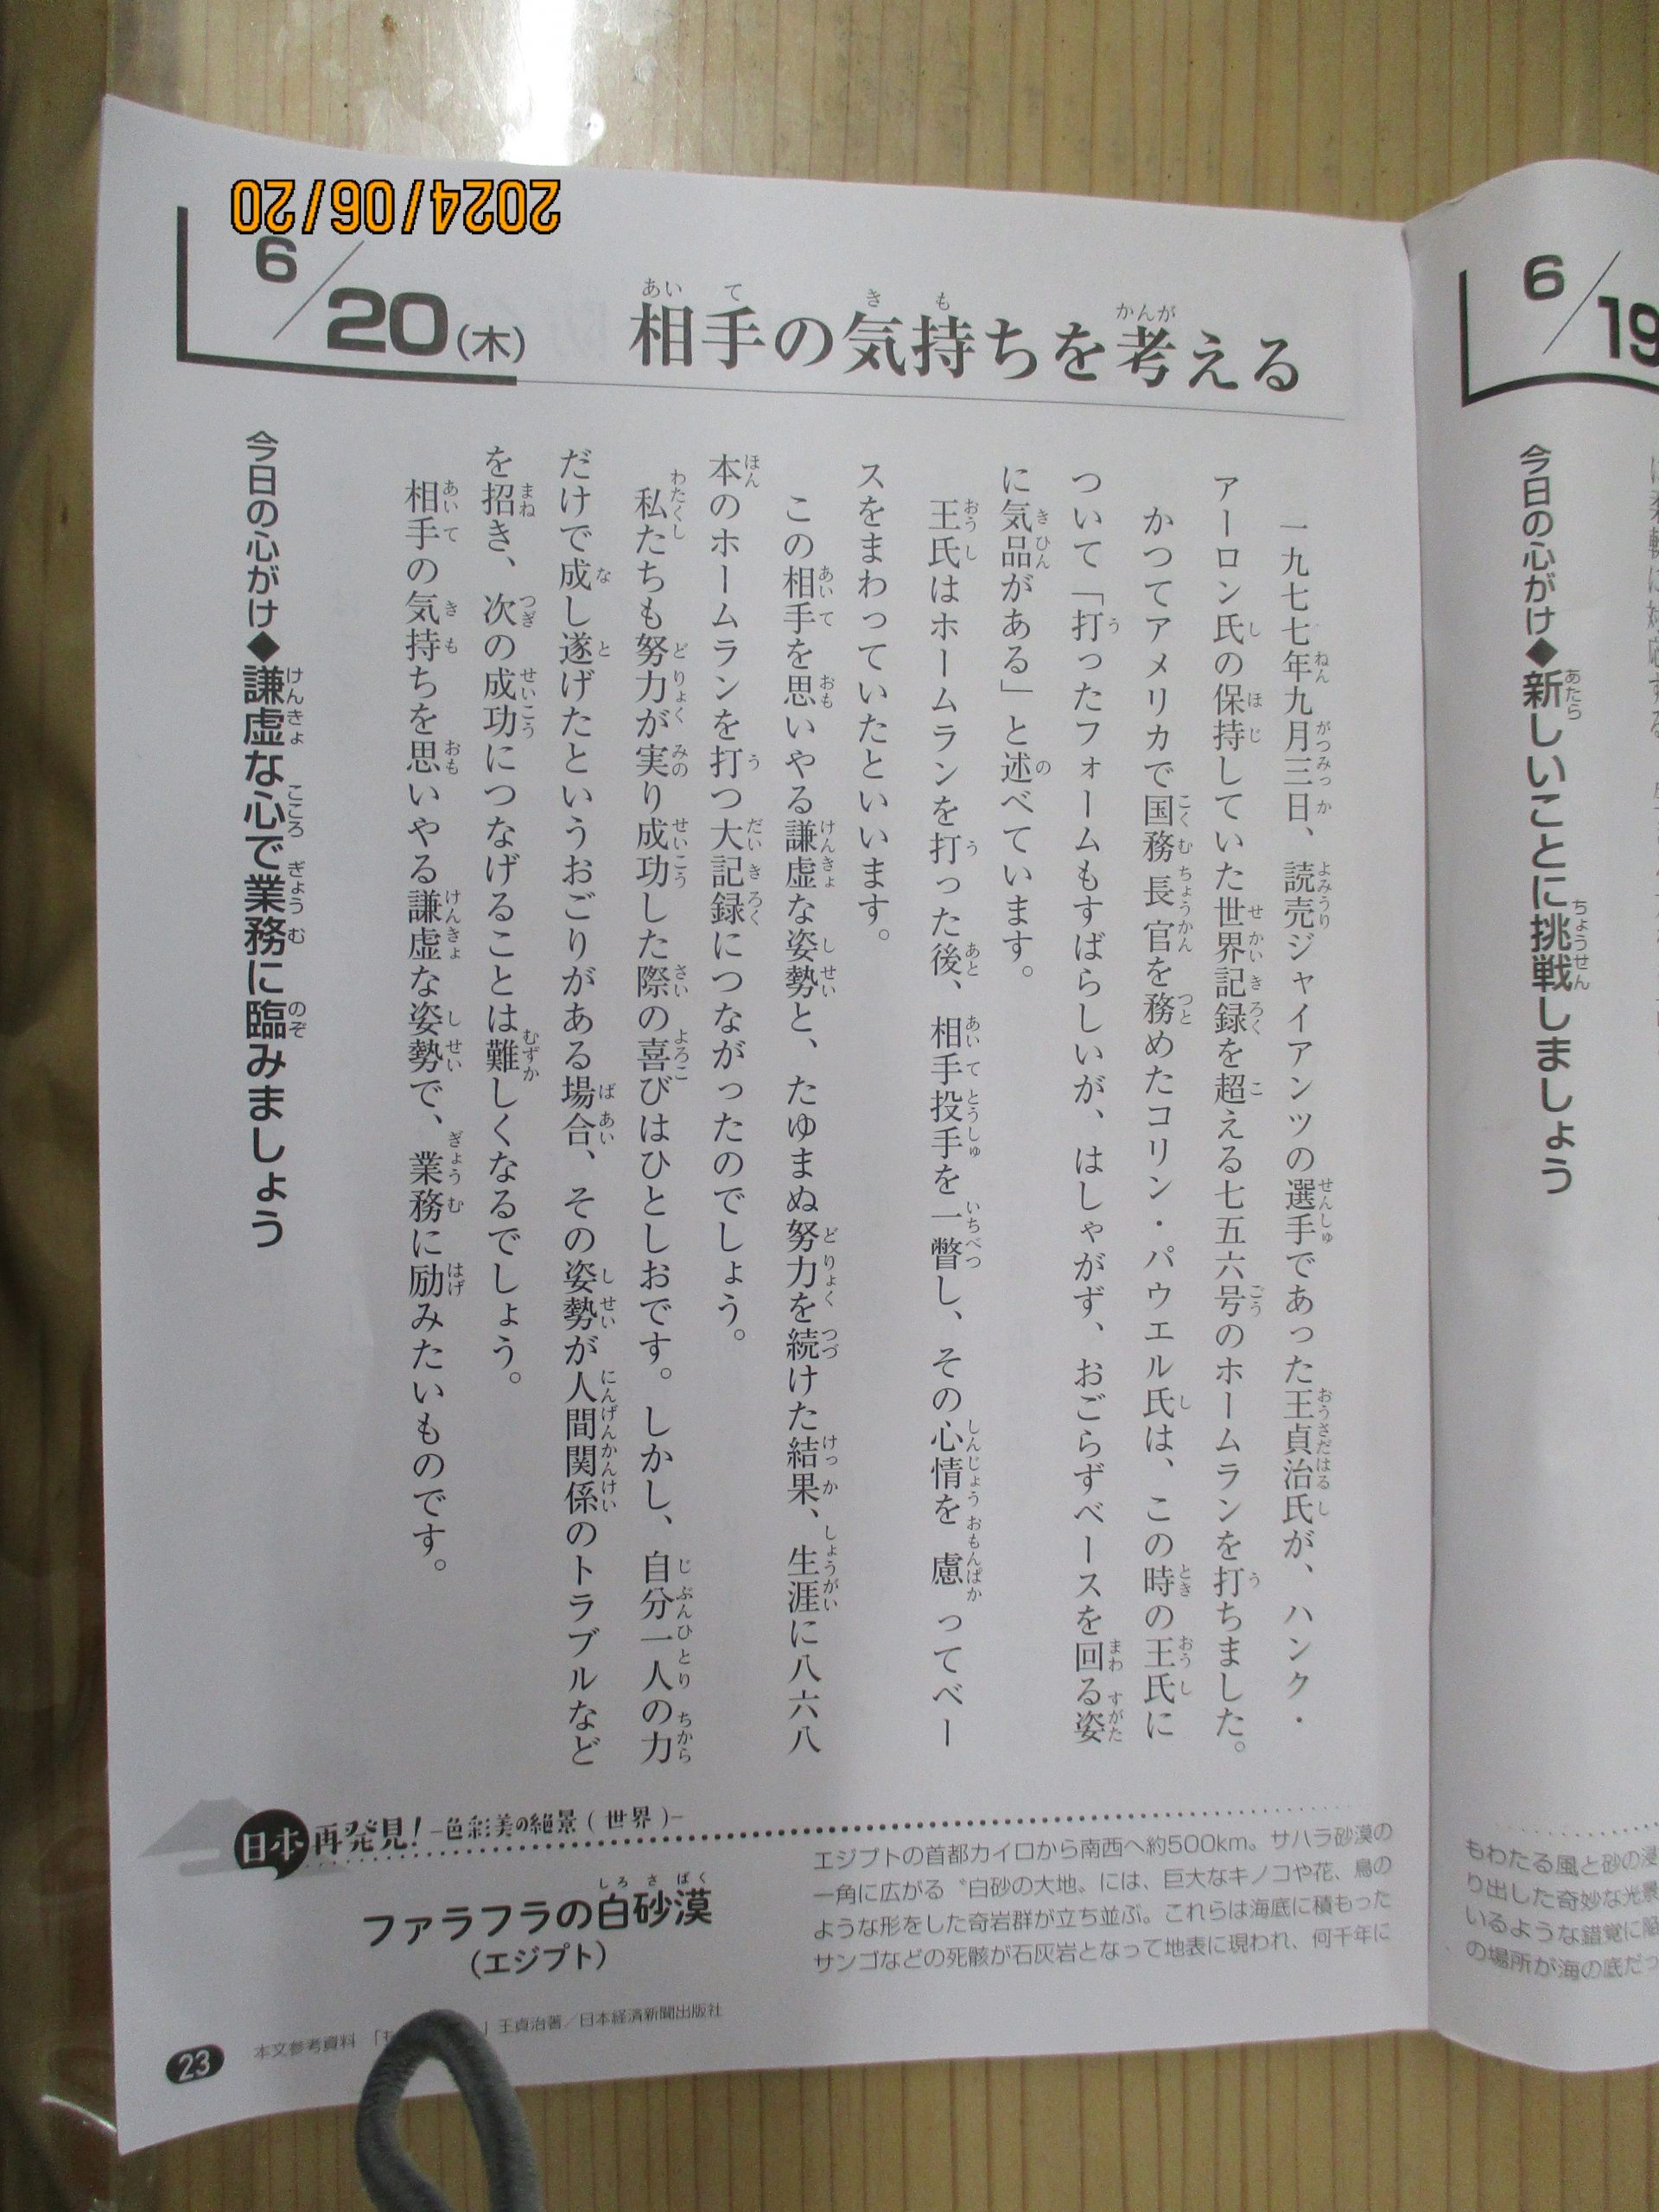 2024/06/20
6/20(木)
相手の気持ちを考える
一九七七年九月三日、読売ジャイアンツの選手であった王貞治氏が、ハンク・
アーロン氏の保持していた世界記録を超える七五六号のホームランを打ちました。
かつてアメリカで国務長官を務めたコリン・パウエル氏は、この時の王氏に
ついて「打ったフォームもすばらしいが、はしゃがず、おごらずベースを回る姿
に気品がある」と述べています。
王氏はホームランを打った後、相手投手を一瞥し、その心情を慮ってベー
スをまわっていたといいます。
この相手を思いやる謙虚な姿勢と、たゆまぬ努力を続けた結果、生涯に八六八
本のホームランを打つ大記録につながったのでしょう。
私たちも努力が実り成功した際の喜びはひとしおです。しかし、自分一人の力
だけで成し遂げたというおごりがある場合、その姿勢が人間関係のトラブルなど
を招き、次の成功につなげることは難しくなるでしょう。
相手の気持ちを思いやる謙虚な姿勢で、業務に励みたいものです。
今日の心がけ◆謙虚な心で業務に臨みましょう
日本再発見！−色彩美の絶景（世界）−
ファラフラの白砂漠
（エジプト）
エジプトの首都カイロから南西へ約500km。サハラ砂漠の
一角に広がる〝白砂の大地〟には、巨大なキノコや花、鳥の
ような形をした奇岩群が立ち並ぶ。これらは海底に積もった
サンゴなどの死骸が石灰岩となって地表に現われ、何千年に
本文参考資料 「 」王貞治著／日本経済新聞出版社
23
6/19
今日の心がけ◆新しいことに挑戦しましょう
もわたる風と砂の浸
り出した奇妙な光景
いるような錯覚に陥
の場所が海の底だっ